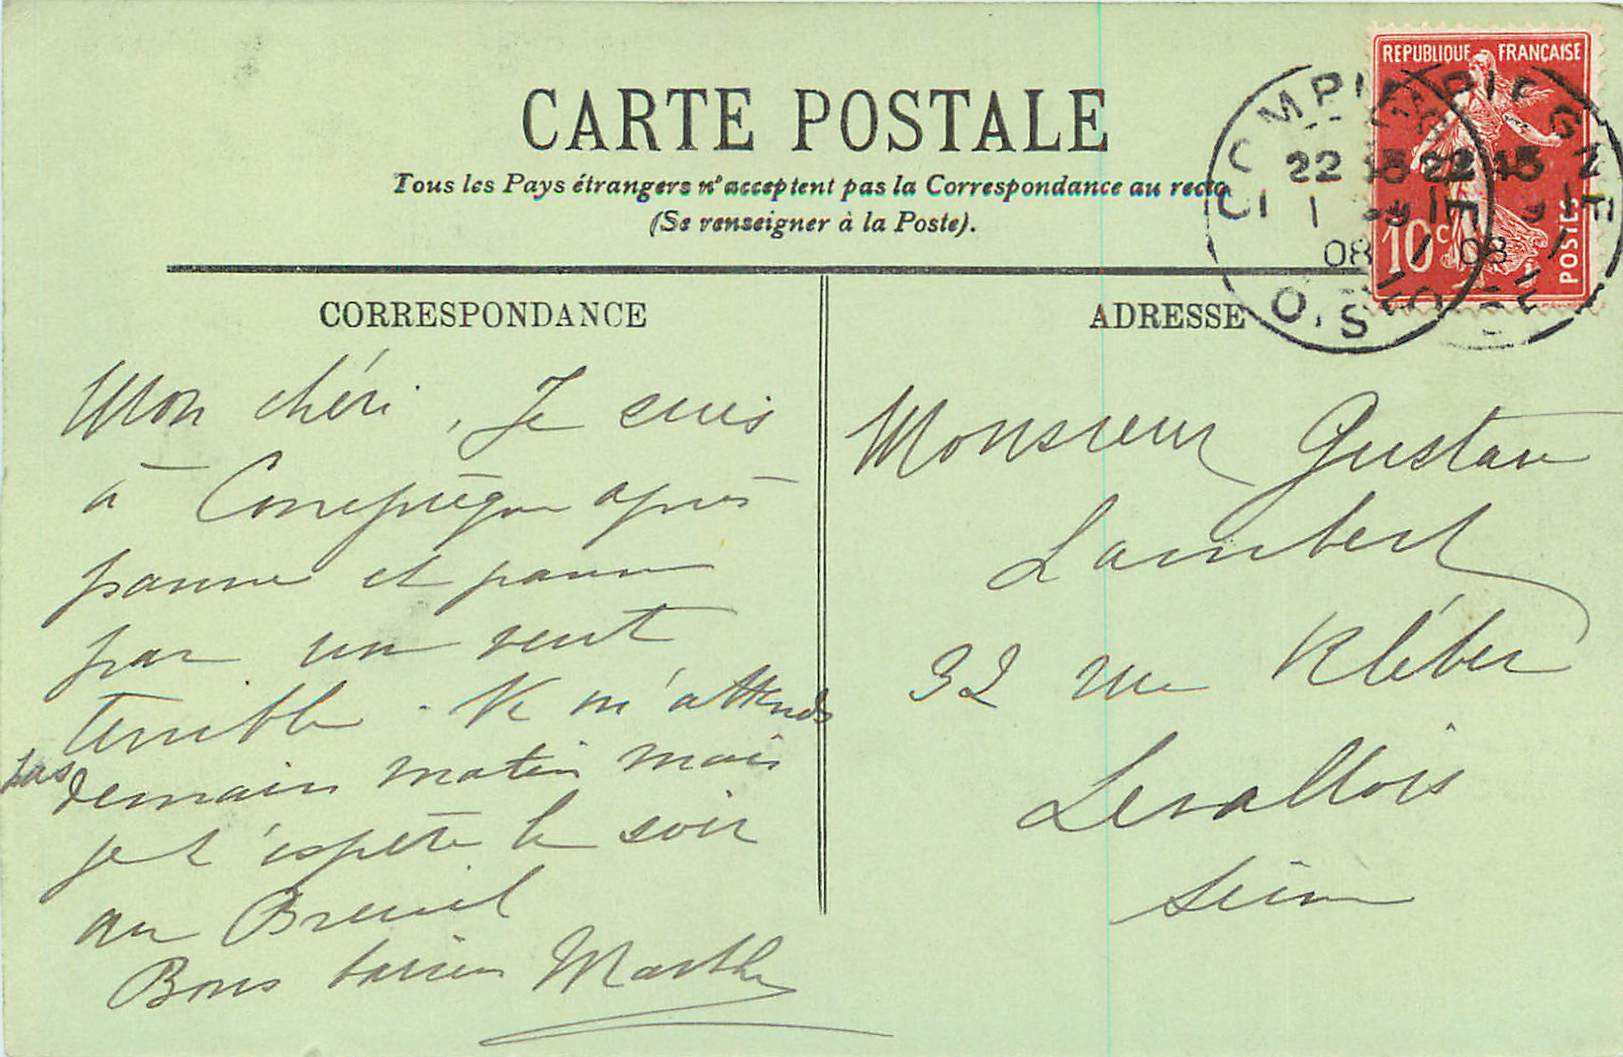 CARTE POSTALE
Tous les Pays étrangers n'acceptent pas la Correspondance au recto
(Se renseigner à la Poste).
CORRESPONDANCE
Mon chéri, Je suis
à Compiègne après
panne et panne
par un vent
terrible. Ne m'attends
pas demain matin mais
je t'espère le soir
au Breuil
Bons baisers Marthe
ADRESSE
Monsieur Gustave
Lambert
32 rue Kléber
Levallois
Seine
REPUBLIQUE FRANÇAISE
10c
POSTES
COMPIEGNE
22
08
OISE
COMPIEGNE
22
08